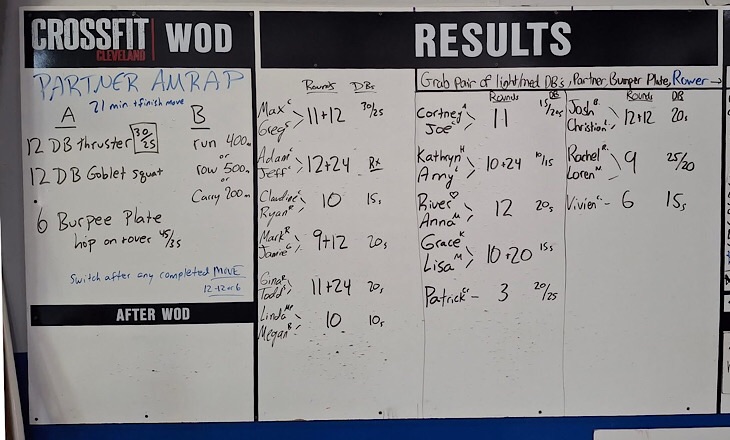 CROSSFIT
CLEVELAND
WOD
RESULTS
PARTNER AMRAP
21 min + finish move
A
B
12 DB thruster 30/25
run 400m
or
12 DB Goblet squat
row 500m
or
Carry 200m
6 Burpee Plate
hop on + over 45/35
Switch after any completed MOVE
12-12 or 6
AFTER WOD
Rounds DBs
Max Greg 11+12 30/25
Adam Jeff 12+24 Rx
Claudine Ryan 10 15s
Mark Jamie 9+12 20s
Gina Todd 11+24 20s
Linda Megan 10 10s
Grab Pair of light/med DB's, Partner, Bumper Plate, Rower →
Rounds DBs
Cortney Joe 11 15/20s
Kathryn Amy 10+24 10/15
River Anna 12 20s
Grace Lisa 10+20 15s
Patrick - 3 20/25
Rounds DB
Josh Christian 12+12 20s
Rachel Loren 9 25/20
Vivien - 6 15s